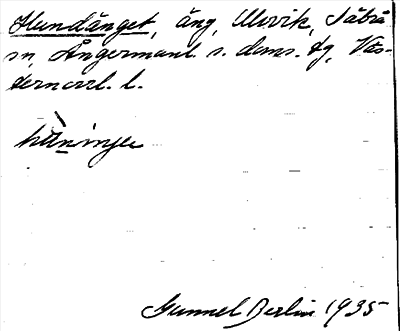 Hundänget, äng, Ulvvik, Säbrå
sn, Ångermanl. s. doms. tg, Väs-
ternorrl. l.
Gunnel Berlin 1935